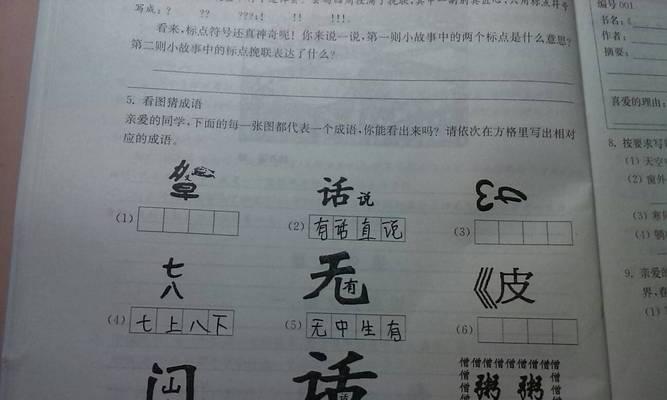 写成：？ ？？ ？？？；！ ！！ ！！！.
看来，标点符号还真神奇呢！你来说一说，第一则小故事中的两个标点是什么意思？
第二则小故事中的标点挽联表达了什么？
5. 看图猜成语
亲爱的同学，下面的每一张图都代表一个成语，你能看出来吗？请依次在方格里写出相对
应的成语。
话说
(1)
(2) 有话直说
(3)
七
八
无
有
皮
(4) 七上八下
(5) 无中生有
(6)
山
话
话
僧僧僧僧僧僧僧僧僧
僧 粥 粥 僧
僧 僧
编号 001
书名：《
作者：
摘要：
喜爱的理由：
8. 按要求写
(1) 天空
(2) 窗外
(3) 寒
(4)
9. 亲爱的
界，在
(1)